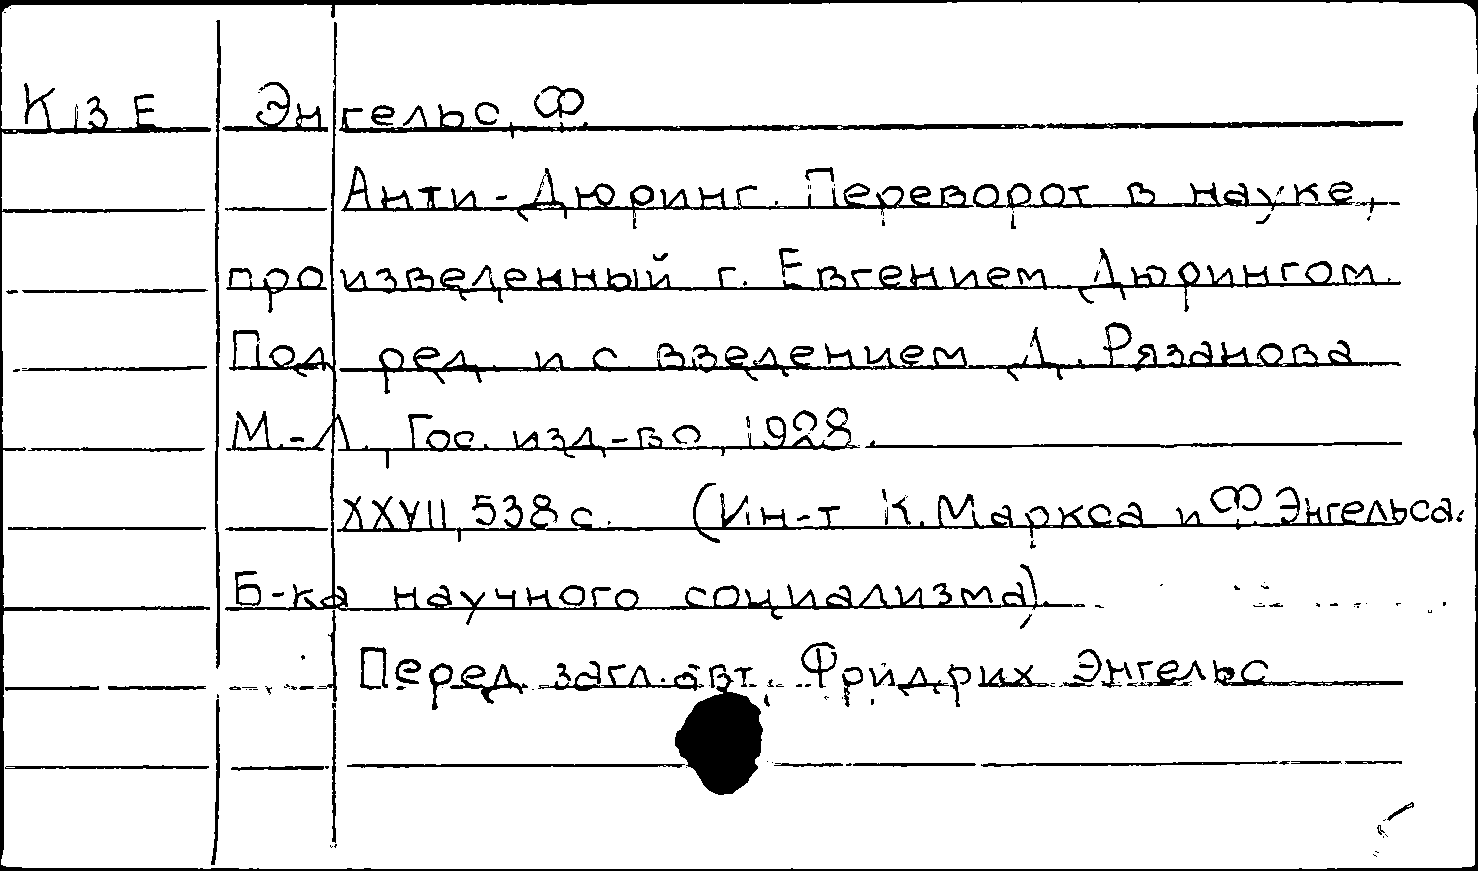 К 13 Е Энгельс, Ф.
Анти-Дюринг. Переворот в науке,
произведенный г. Евгением Дюрингом.
Под ред. и с введением Д. Рязанова
М.-Л., Гос. изд-во, 1928.
XXVII, 538 с. (Ин-т К. Маркса и Ф. Энгельса.
Б-ка научного социализма).
Перед загл. авт. Фридрих Энгельс